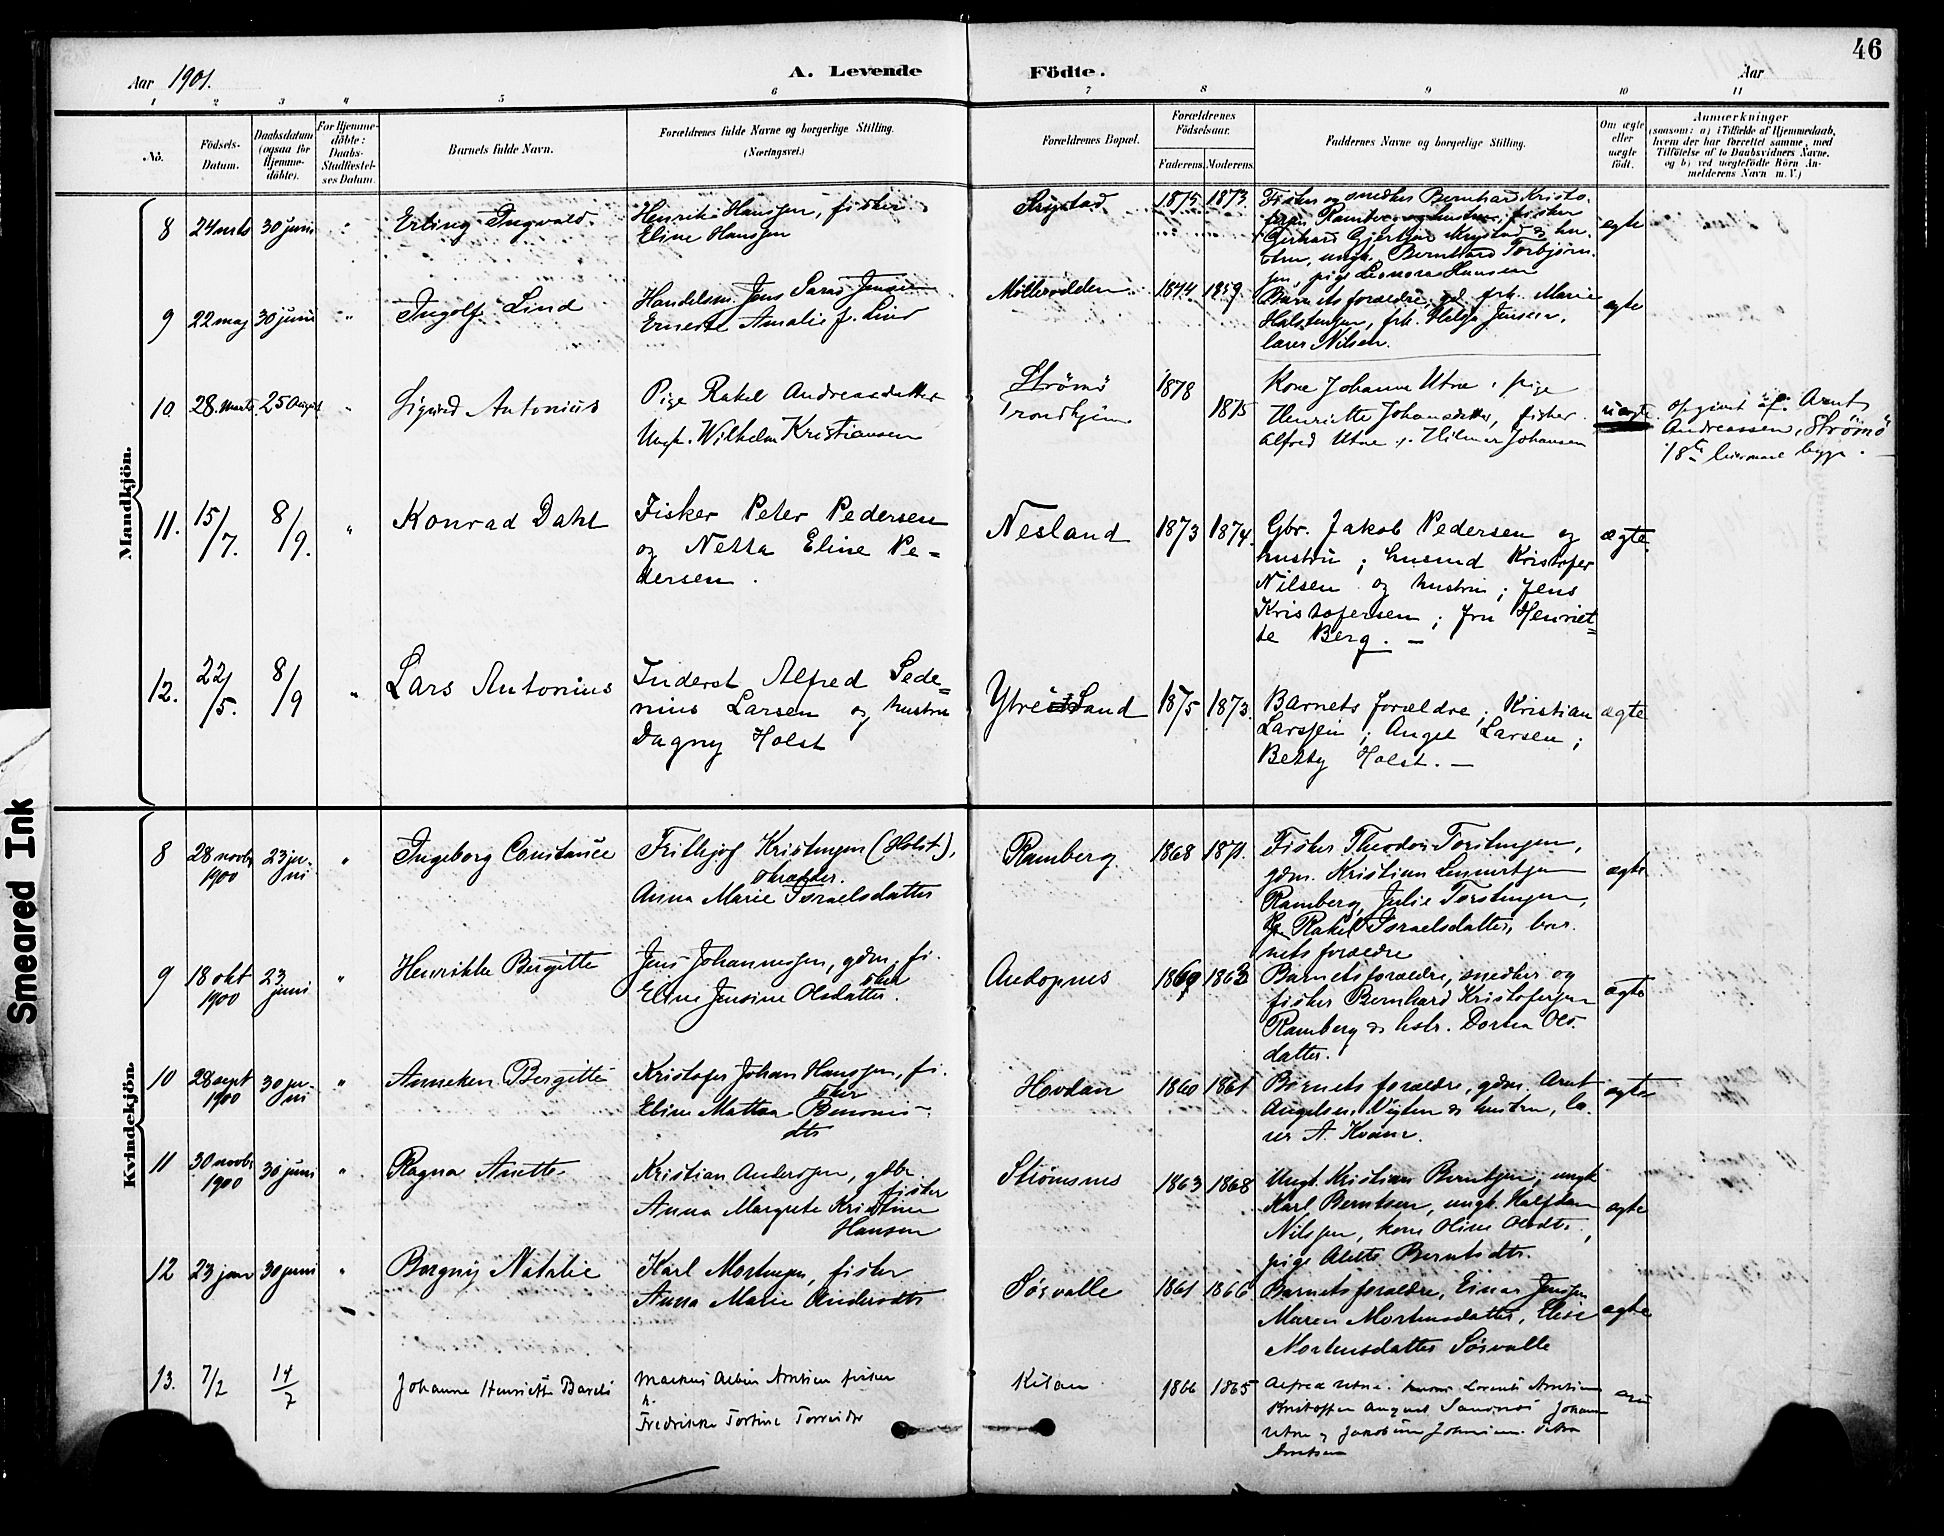 46
Aar 1901.
A. Levende
Födte.
Aar
1 2 3 4 5 6 7 8 9 10 11
No.
Födsels-Datum.
Daabsdatum (ogsaa for Hjemmedöbte).
For Hjemmedöbte: Daabs-Stadfæstelses Datum.
Barnets fulde Navn.
Forældrenes fulde Navne og borgerlige Stilling.
(Næringsvei.)
Forældrenes Bopæl.
Forældrenes Födselsaar.
Faderens. Moderens.
Faddernes Navne og borgerlige Stilling.
Om ægte eller uægte födt.
Anmærkninger
(saasom: a) i Tilfælde af Hjemmedaab, hvem der har forrettet samme, med Tilföielse af to Daabsvidners Navne, og b) ved uægtefödte Börn Anmelderens Navn m. V.)
Mandkjön.
8 24 mts 30 juni " Erling Ingvald
Henrik Hanssen, fisker
Eline Hansen
1875 1873
Fisker og snedker Bernhard Kristo-
fersen Ramberg og hustru, fisker
Gerhard Gjertsen Krystad & hu-
stru, ungk. Bernhard Torbjørn-
sen, pige Leonora Hansen
ægte
9 22 maj 30 juni " Ingolf Lind
Handelsm. Jens Jensen
Ernest Amalie f. Lind
1844 1859
Barnets forældre, frk. Marie
frk. Helga Jensen,
lærer Nilsen.
ægte
10 28 marts 25 August " Sigurd Antonius
Pige Rakel Andreasdatter
Ungk. Wilhelm Kristiansen
Strömö
Trondhjem
1878
1875
Kone Johanna Utne, pige
Henriette Johansdatter, fisker
Alfred Utne, Hilmar Johansen
uægte
opgivet af Arnt
Andreassen, Strömö
1ste leiermaal begge.
11. 15/7. 8/9. " Konrad Dahl
Fisker Peter Pedersen
og Netta Eline Pe-
dersen.
Nesland
1873 1874.
Gbr. Jakob Pedersen og
hustru; husmd Kristofer
Nilsen og hustru; Jens
Kristofersen; fru Henriet-
te Berg. —
ægte.
12. 22/5. 8/9 " Lars Antonius
Inderst Alfred Pede-
nius Larsen og hustru
Dagny Holst
Ytre Sand
1875 1873.
Barnets forældre; Kristian
Larssen; Angel Larsen;
Betty Holst. —
ægte
Kvindekjön.
8 28 novbr 1900 23 juni " Ingeborg Constance
Fritjof Kristensen (Holst),
skrædder.
Anna Marie Israelsdatter
Ramberg
1868 1871.
Fisker Theodor Torstensen,
gdm. Kristian Lennertsen
Ramberg, Julie Torstensen,
Pg. Rakel Israelsdatter, bar-
nets forældre
ægte
9 18 okt 1900 23 juni " Henrikke Bergitte
Jens Johannessen, gdm. fi-
sker
Eline Jensine Olsdatter.
Andopnes
1869 1863
Barnets forældre, snedker og
fisker Bernhard Kristofersen
Ramberg & hstr. Dortea Ols-
datter.
ægte
10 28 sept 1900 30 juni " Anneken Bergitte
Kristofer Johan Hanssen, fi-
sker
Eline Mattea Benonis-
dtr
Hovdan
1860 1861
Barnets forældre, gdm. Arnt
Angelsen Vigten & hustru, læ-
rer A. Kvam.
ægte
11 30 novbr 1900 30 juni " Ragna Anette
Kristian Anderssen, gdbr
fisker
Anna Margrete Kristine
Hansen
Strömsnes
1863 1868
Ungk. Kristian Berntsen, ungk
Karl Berntsen, ungk. Halfdan
Nilssen, kone Oline Olsdtr,
pige Alette Berntsdtr.
ægte
12 23 janr 30 juni " Borgny Natalie
Karl Mortensen, fisker
Anna Marie Andersdtr
Sörvalle
1861 1866
Barnets forældre, Einar Jenssen
Maren Mortensdatter, Elise
Mortensdatter Sörvalle
ægte
13. 7/2 14/7 Johanne Henriette
Arntsen fisker
h.
Fredrikke
Kilan
1866 1865
Alfred Utne. Arntsen
Kristoffer August Sandnes Johan
Utne
Arntsen
Smeared Ink